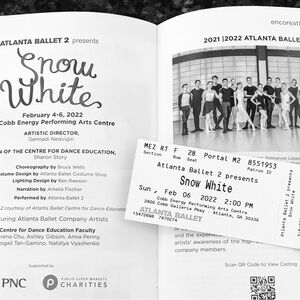 ATLANTA BALLET 2 presents
Snow
White
February 4-6, 2022
Cobb Energy Performing Arts Centre
ARTISTIC DIRECTOR,
Gennadi Nedvigin
OF THE CENTRE FOR DANCE EDUCATION,
Sharon Story
Choreography by Bruce Wells
Costume Design by Atlanta Ballet Costume Shop
Lighting Design by Ben Rawson
Narration by Amelia Fischer
Performed by Atlanta Ballet 2
courtesy of Atlanta Ballet Centre for Dance Education
Featuring Atlanta Ballet Company Artists
Centre for Dance Education Faculty
Serena Chu, Ashley Gibson, Anna Penny,
Abigail Tan-Gamino, Natalya Vyashenko
Supported by
PNC
PUBLIX SUPER MARKETS
CHARITIES
encoreatl
2021 | 2022 ATLANTA BALLET
MEZ RT F 28 Portal M2 8551953
Section Row Seat Patron ID
Atlanta Ballet 2 presents
Snow White
Sun, Feb 06 2022 2:00 PM
Cobb Energy Performing Arts Centre
2800 Cobb Galleria Pkwy - Atlanta, GA 30339
ATLANTA BALLET
artists' awareness of the high
company members.
Scan QR Code to View Casting